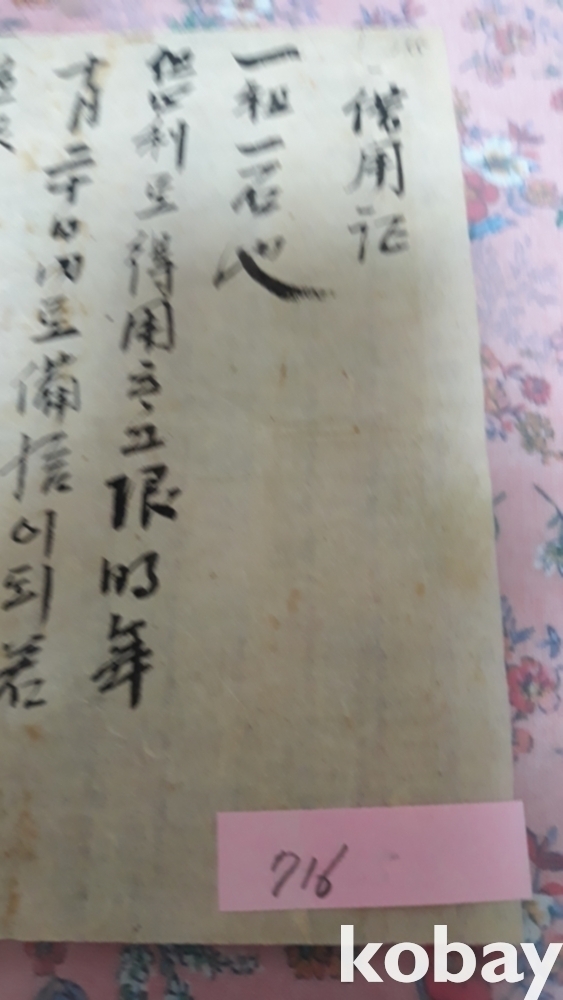 借用証
一租一石也
但 利로得用하고限明年
十月二十日內로備 이되若
716
kobay